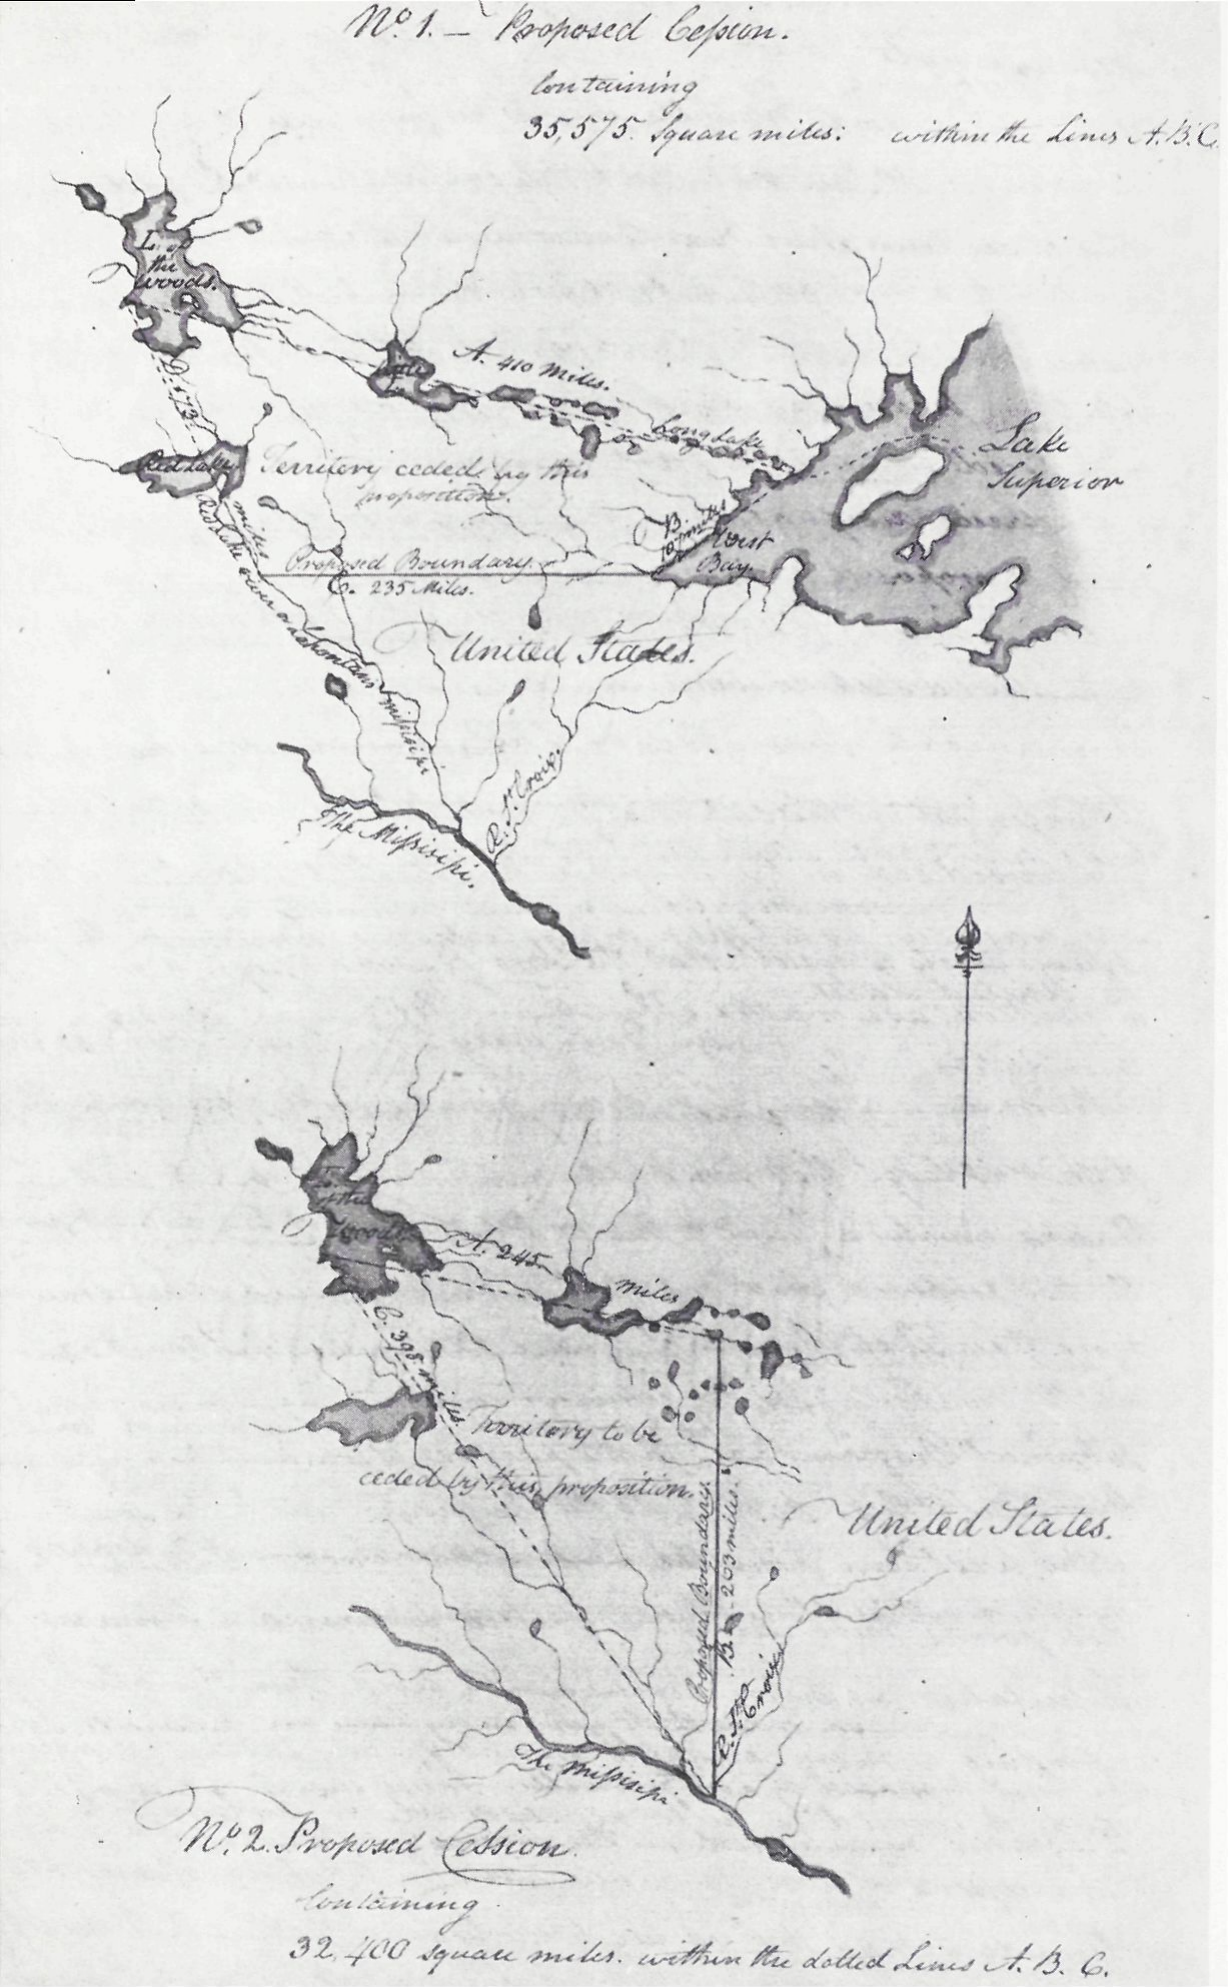 No. 1. — Proposed Cession.
Containing
35,575. Square miles: within the Lines A. B. C.
L. of
the
Woods.
A. 410 Miles.
D. 173
Long Lake
Lake
Superior
Red Lake
Territory ceded by this
proposition.
miles
B.
107 miles
West
Bay.
Proposed Boundary.
C. 235 Miles.
Red Lake River or Lahontans Missisipi
United States.
R. St. Croix.
The Missisipi.
L.
of the
Woods
A. 245
miles
C. 398 miles.
Territory to be
ceded by this proposition.
Proposed Boundary.
B. 203 miles.
United States.
R. St. Croix
The Missisipi
No. 2. Proposed Cession.
Containing
32,400 square miles. within the dotted Lines A. B. C.